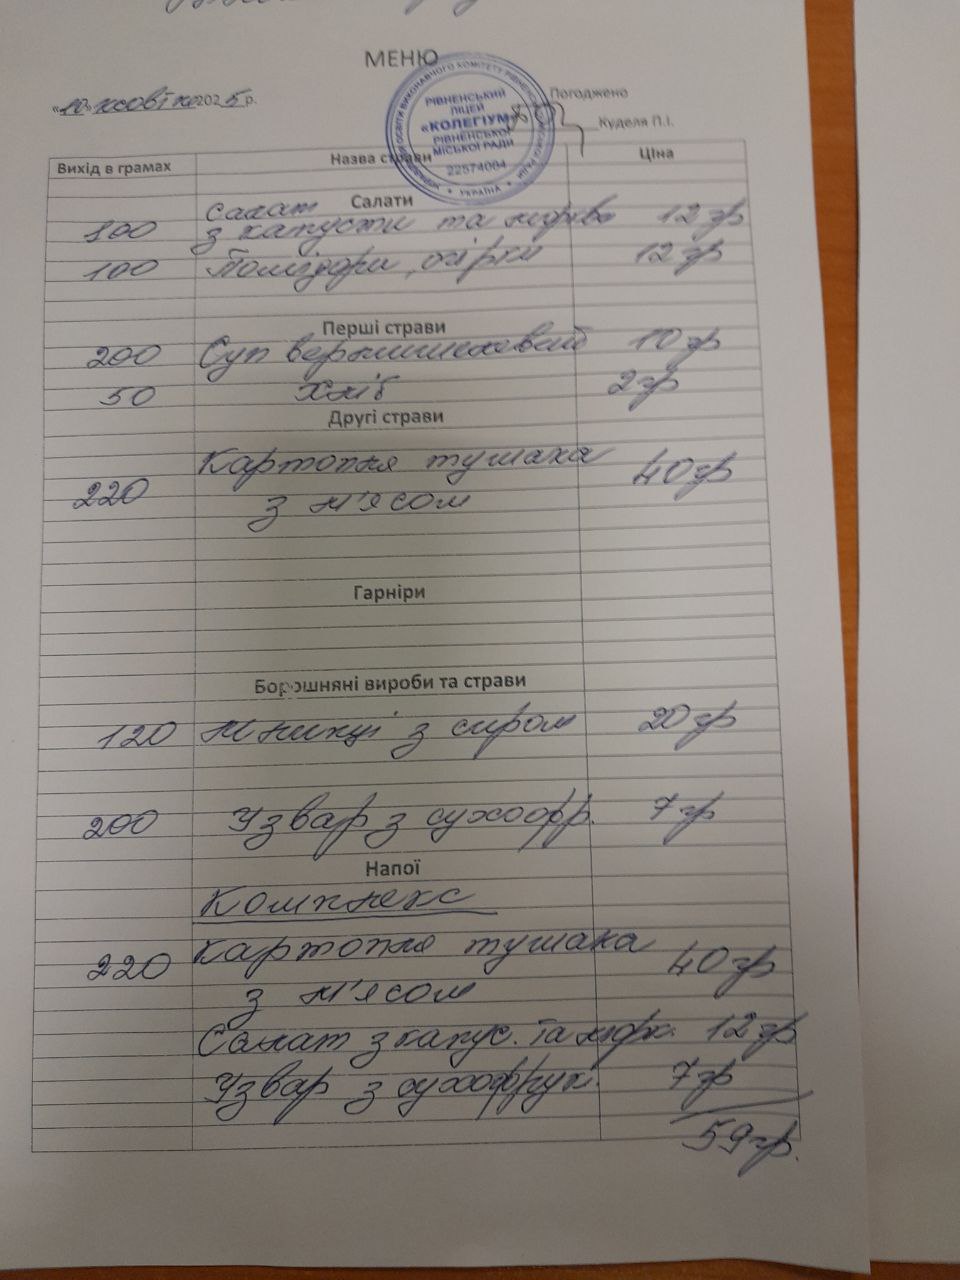 МЕНЮ
«10» жовтня 2025 р.
Погоджено
Куделя П.І.
РІВНЕНСЬКИЙ
ЛІЦЕЙ
«КОЛЕГІУМ»
РІВНЕНСЬКОЇ
МІСЬКОЇ РАДИ
22574084
УКРАЇНА
Вихід в грамах Назва страви Ціна
Салати
Салат
100 з капусти та моркв 12 гр
100 Помідори, огірки 12 гр
Перші страви
200 Суп вермишелевий 10 гр
50 Хліб 2 гр
Другі страви
Картопля тушена
220 з м'ясом 40 гр
Гарніри
Борошняні вироби та страви
120 Млинці з сиром 20 гр
200 Узвар з сухофр. 7 гр
Напої
Комплекс
220 Картопля тушена 40 гр
з м'ясом
Салат з капус. та морк. 12 гр
Узвар з сухофрук. 7 гр
59 гр.